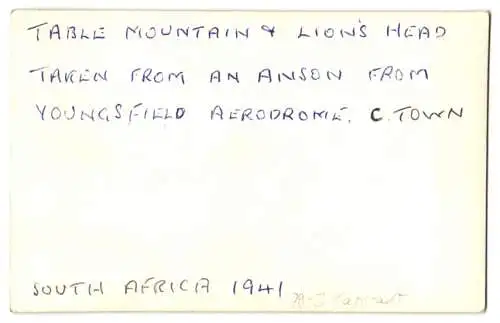 TABLE MOUNTAIN & LION'S HEAD
TAKEN FROM AN ANSON FROM
YOUNGSFIELD AERODROME. C. TOWN
SOUTH AFRICA 1941